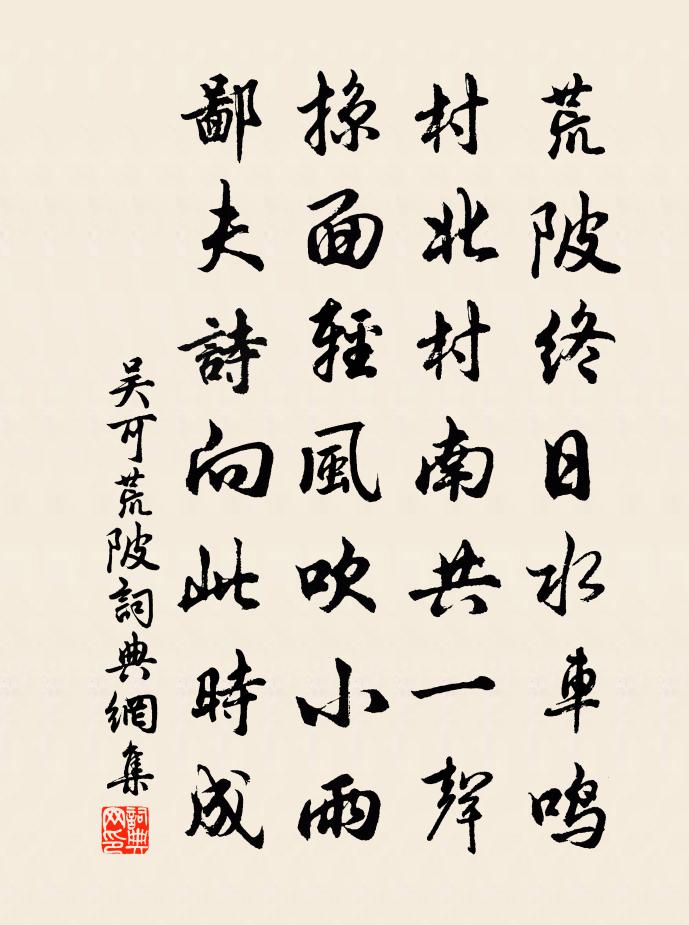 荒陂终日水車鸣
村北村南共一聲
掠面輕風吹小雨
鄙夫詩向此時成
吴可荒陂詞典網集
詞典網印